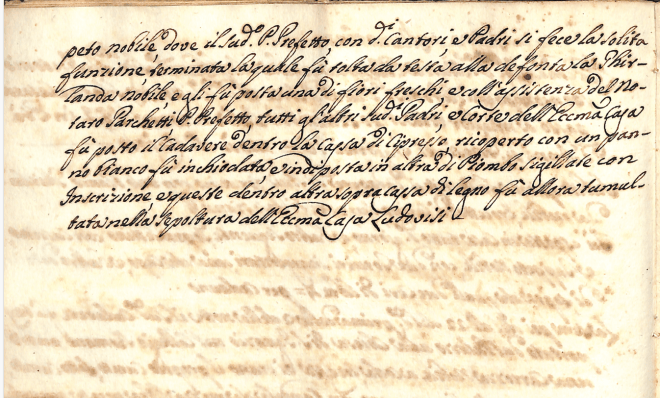 peto nobile dove il Sud.º P. Prefetto, con d.i Cantori e Padri si fece la solita
funzione terminata la quale fù tolta da testa alla defonta la Ghir-
landa nobile e gli fù posta una di fiori freschi e coll'assistenza del No-
taro Parchetti P. Prefetto, tutti gl'altri Sud.i Padri e Corte dell'Eccma Casa
fù posto il Cadavere dentro la Cassa di Cipresso, ricoperto con un pan-
no bianco fù inchiodata e indi posta in altra di Piombo sigillate con
Inscrizione e queste dentro altra sopra cassa di legno fù allora tumul-
tata nella sepoltura dell'Eccma Casa Ludovisi